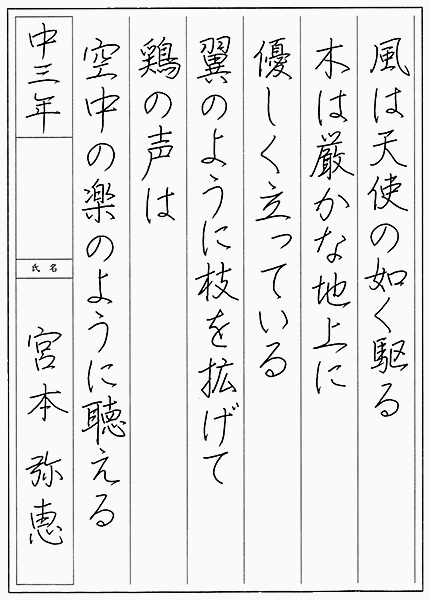 風は天使の如く駆る
木は厳かな地上に
優しく立っている
翼のように枝を拡げて
鶏の声は
空中の楽のように聴える
中三年
氏名
宮本弥恵